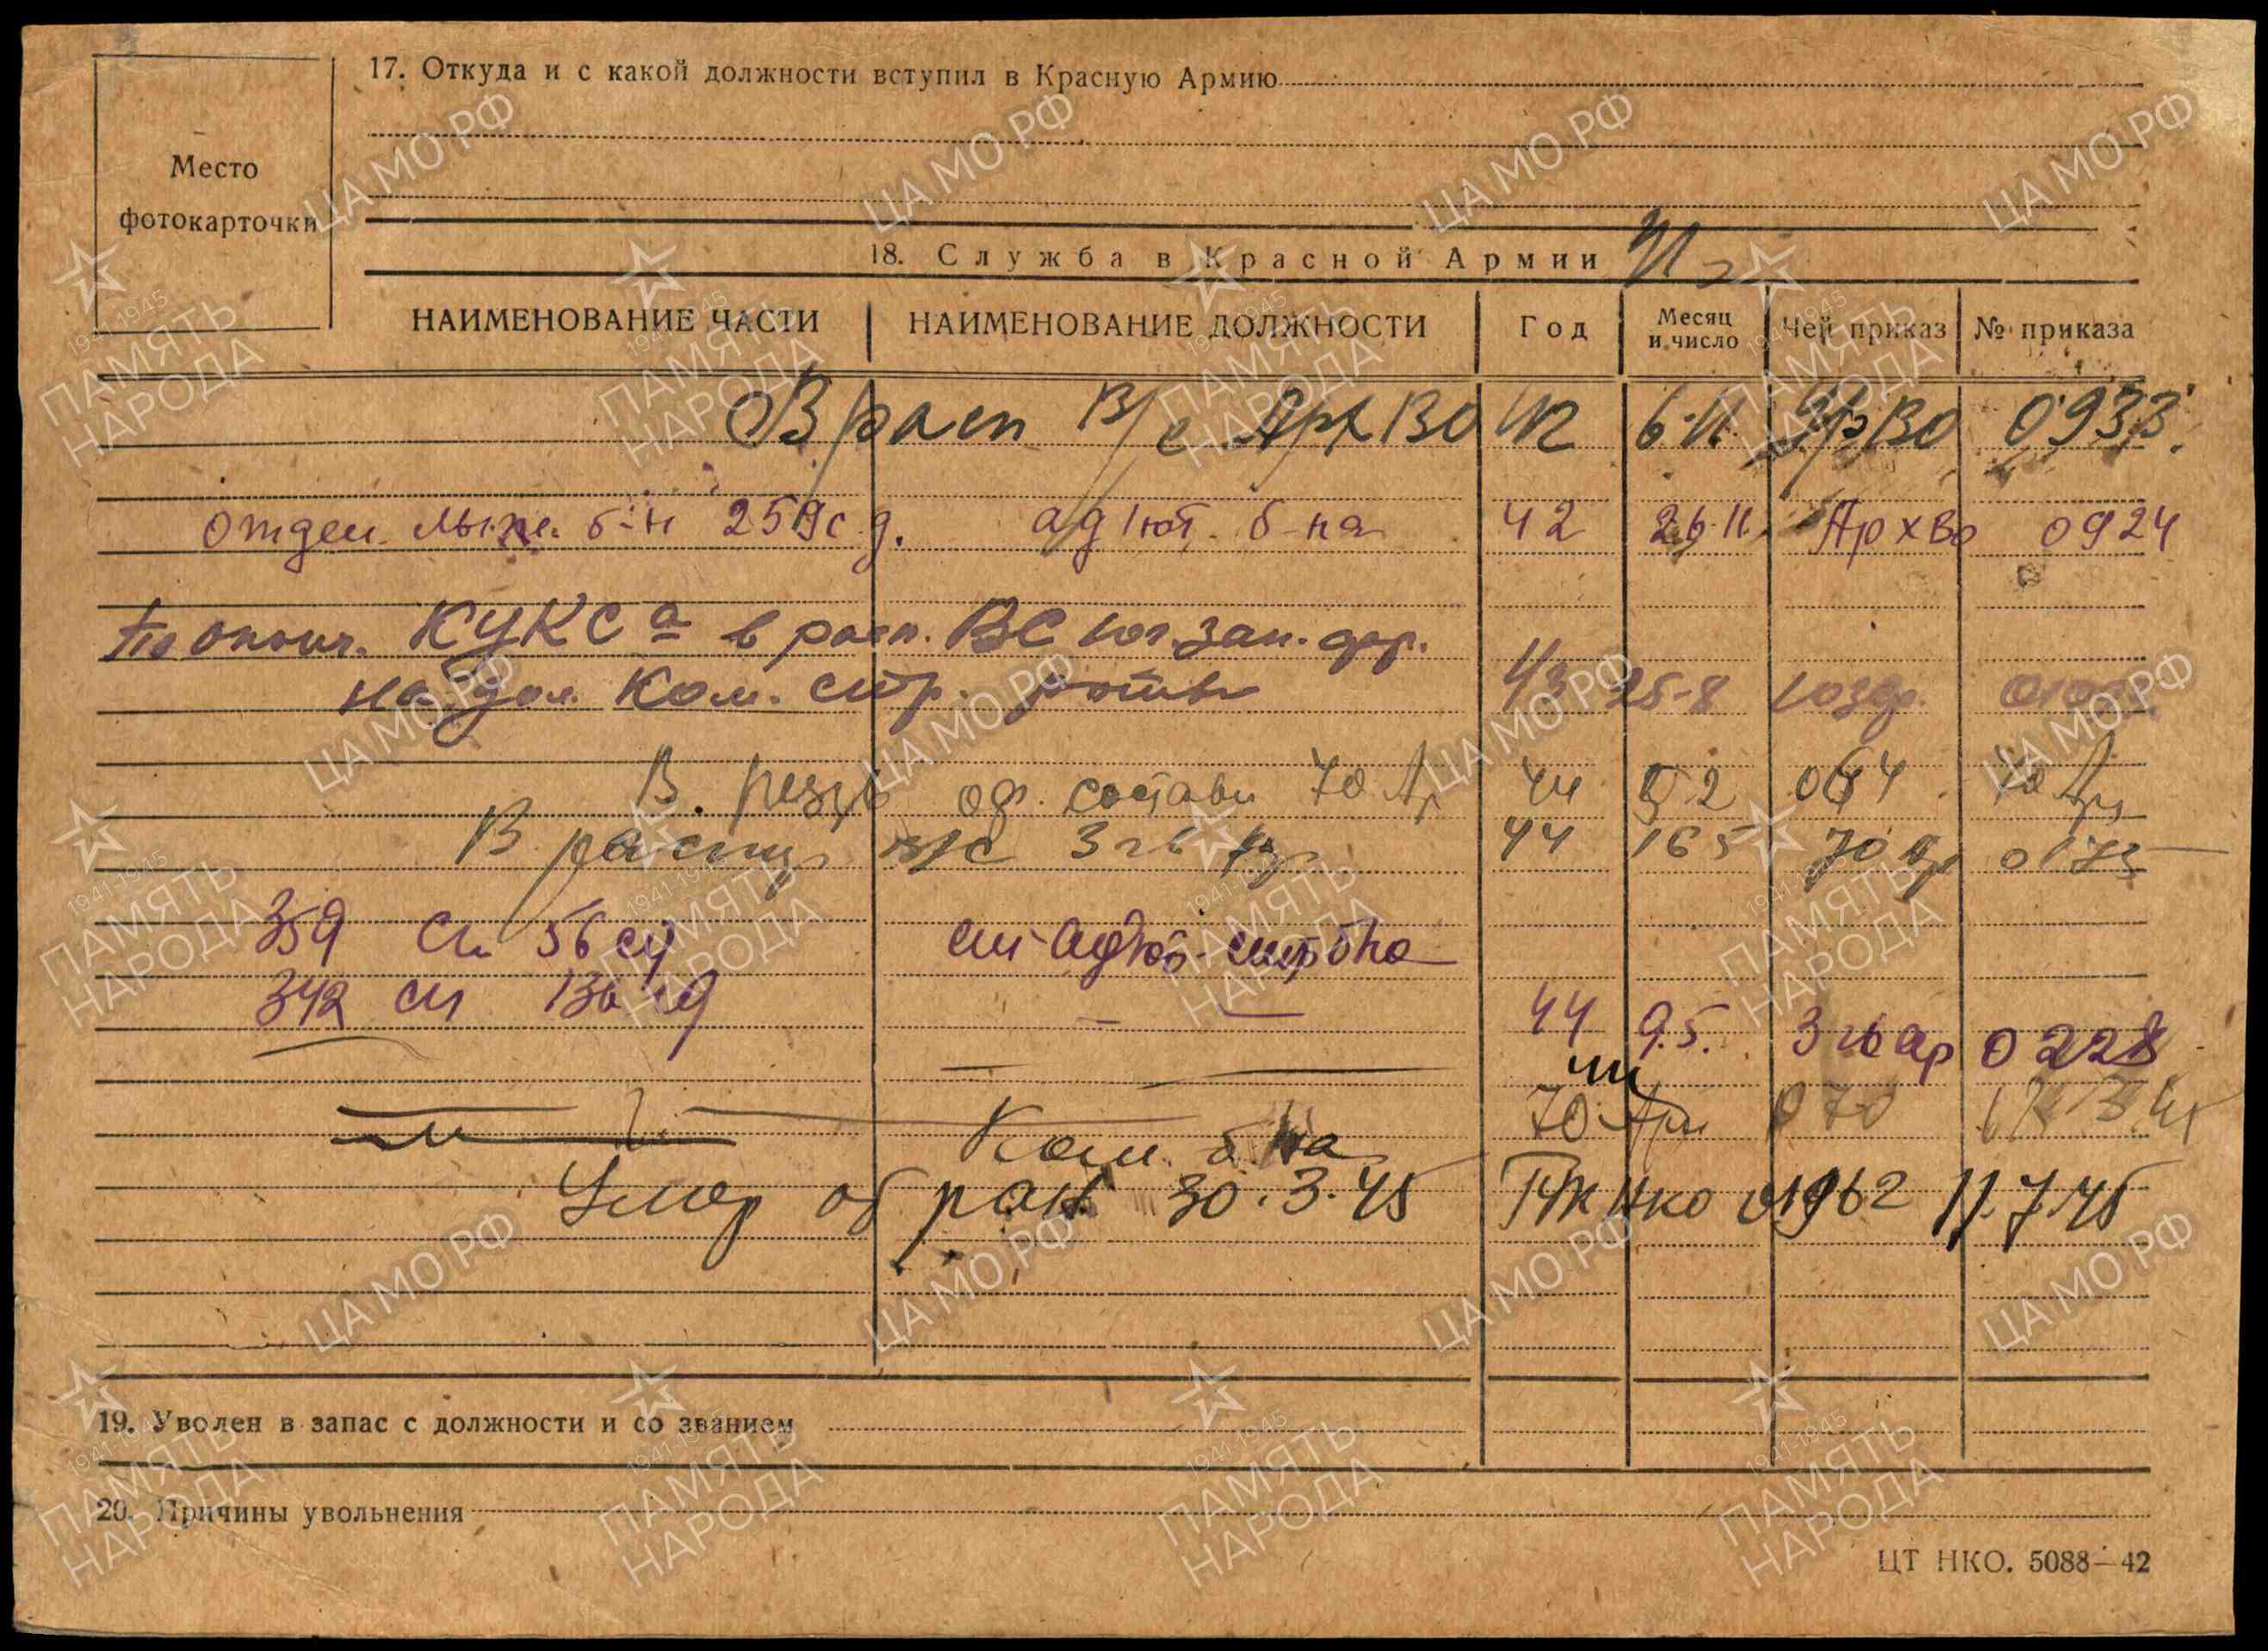 Место
фотокарточки
17. Откуда и с какой должности вступил в Красную Армию
18. Служба в Красной Армии
НАИМЕНОВАНИЕ ЧАСТИ НАИМЕНОВАНИЕ ДОЛЖНОСТИ Год Месяц и число Чей приказ № приказа
В расп В/с АрхВО 42 6.11 АрхВО 0933
отдел. лыж. б-н 259 с.д. адъют. б-на 42 26.11 АрхВо 0924
По оконч. КУКСа в расп. ВС юг. зап. фр.
на дол. Ком. стр. роты 43 25-8
В. резерв оф. состава 70 Ар 44 70 Арм
В распор в/с 3 гв 44 16 5 70 Ар
359 сп 56 сд ст адъют. стр б-на
342 сп 130 сд — — 44 9.5. 3 гв ар 0228
Ком. б-на 70 Арм 070
Умер от ран 30.3.45 ГУК НКО 01962 11.7.45
19. Уволен в запас с должности и со званием
20. Причины увольнения
ЦТ НКО. 5088—42
ЦА МО РФ
1941-1945
ПАМЯТЬ
НАРОДА